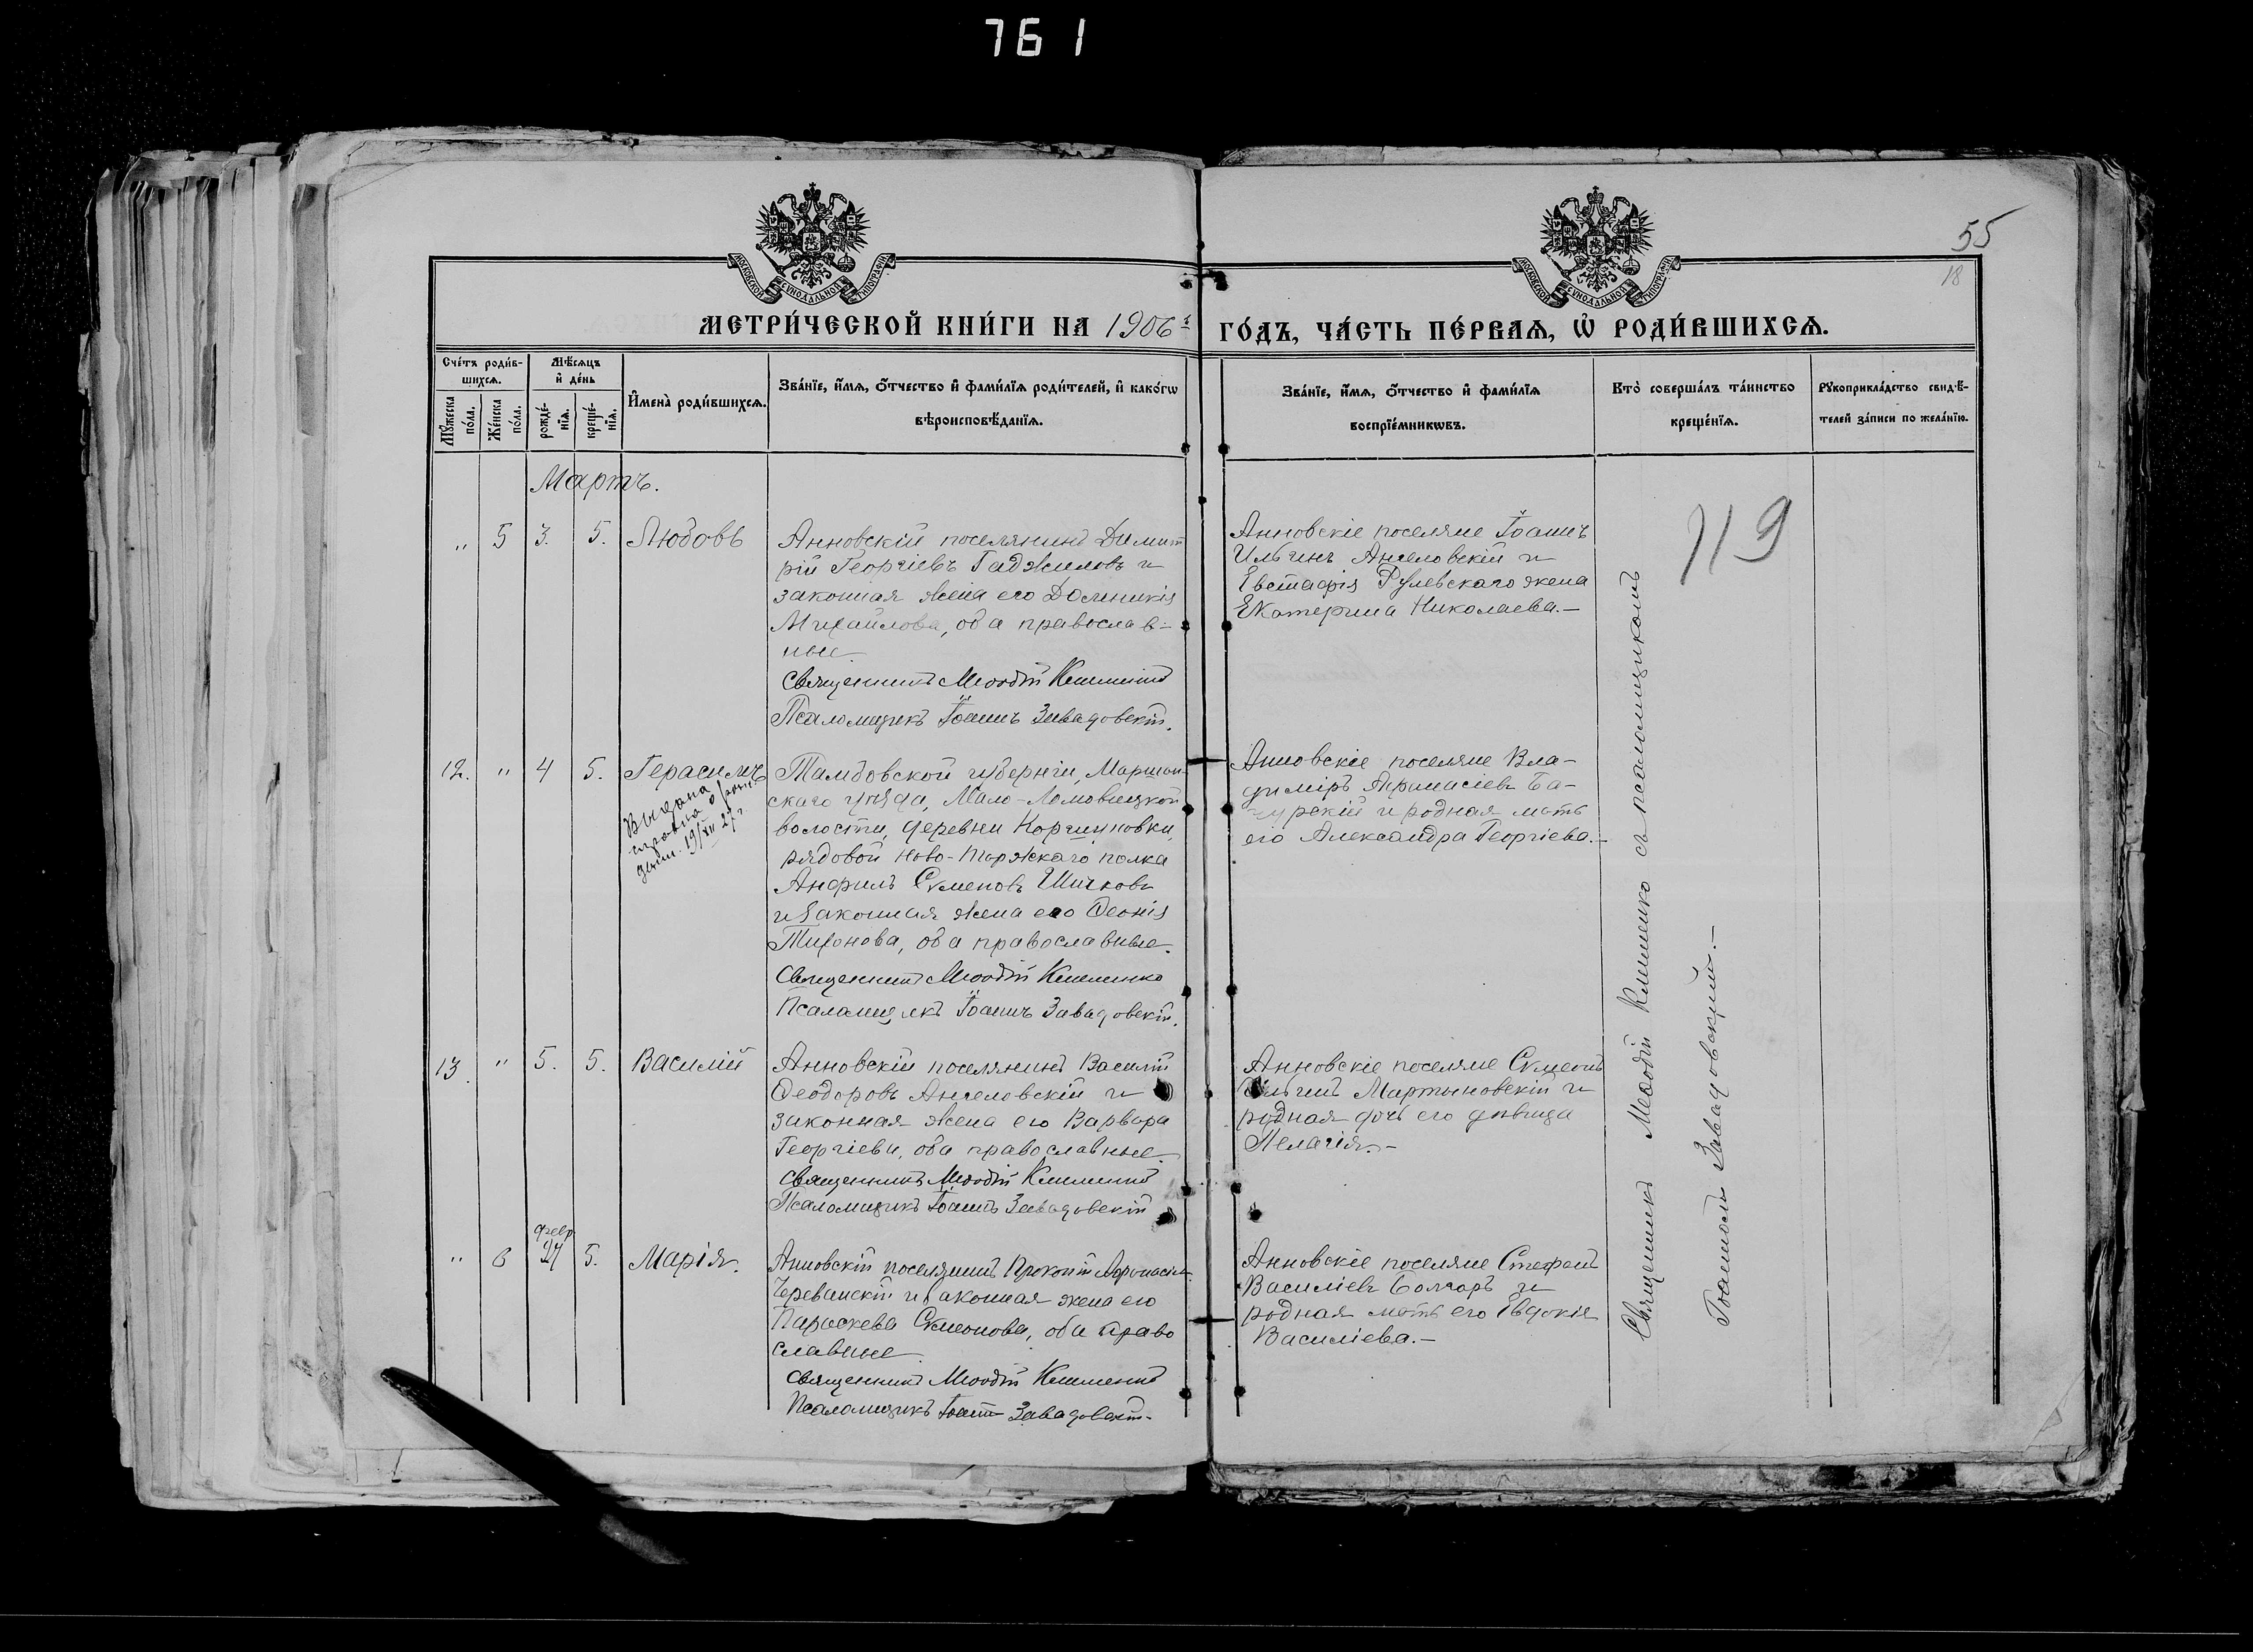 761
55
18
МОСКОВСКОЙ СѴНОДАЛЬНОЙ ТИПОГРАФІИ
МОСКОВСКОЙ СѴНОДАЛЬНОЙ ТИПОГРАФІИ
МЕТРИ́ЧЕСКОЙ КНИ́ГИ НА 1906 г. ГО́ДЪ, ЧА́СТЬ ПЕ́РВАѦ, Ѡ҆ РОДИ́ВШИХСѦ.
Сче́тъ роди́вшихсѧ.
Мꙋ́жеска по́ла.
Же́нска по́ла.
Мѣ́сѧцъ и҆ де́нь
рожде́нїѧ.
креще́нїѧ.
И҆мена̀ роди́вшихсѧ.
Зва́нїе, и҆́мѧ, ѻ҆́тчество и҆ фами́лїѧ роди́телей, и҆ како́гѡ
вѣроисповѣ́данїѧ.
Зва́нїе, и҆́мѧ, ѻ҆́тчество и҆ фами́лїѧ
воспрїе́мникѡвъ.
Кто̀ соверша́лъ та́инство
креще́нїѧ.
Рꙋкоприкла́дство свидѣ́-
телей за́писи по жела́нїю.
Мартъ.
" 5 3. 5. Любовь
Анновскій поселянинъ Димит
рій Георгіевъ Гаджиловъ и
законная жена его Домникія
Михайлова, оба православ-
ные.
Священникъ Меѳодій Клименко
Псаломщикъ Іоаннъ Завадовскій.
Анновскіе поселяне Іоаннъ
Ильинъ Ангеловскій и
Евстафія Рулевскаго жена
Екатерина Николаева.—
119
12. " 4 5. Герасимъ
Выдана
справка о рожд.
19/XII 27 г.
Тамбовской губерніи, Моршан-
скаго уѣзда, Мало-Ломовицкой
волости, деревни Коршиновки,
рядовой Ново-Торжскаго полка
Анфилъ Сѵменовъ Шичковъ
и законная жена его Ѳеонія
Тихонова, оба православные.
Священникъ Меѳодій Клименко
Псаломщикъ Іоаннъ Завадовскій.
Анновскіе поселяне Вла-
диміръ Афанасіевъ Ба-
и родная мать
его Александра Георгіева.—
13. " 5. 5. Василій
Анновскій поселянинъ Василій
Ѳеодоровъ Ангеловскій и
законная жена его Варвара
Георгіева, оба православные.
Священникъ Меѳодій Клименко
Псаломщикъ Іоаннъ Завадовскій
Анновскіе поселяне Сѵмеонъ
Ильинъ Мартыновскій и
родная дочь его дѣвица
Пелагія.—
" 6 февр. 27 5. Марія.
Анновскій поселянинъ Прокопій Афонасіев.
Череванскій и законная жена его
Параскева Сѵмеонова, оба право
славные.
Священникъ Меѳодій Клименко
Псаломщикъ Іоаннъ Завадовскій.
Анновскіе поселяне Стефанъ
Василіевъ Болгаръ и
родная мать его Евдокія
Василіева.—
Священникъ Меѳодій Клименко съ псаломщикомъ
Іоанномъ Завадовскимъ.—